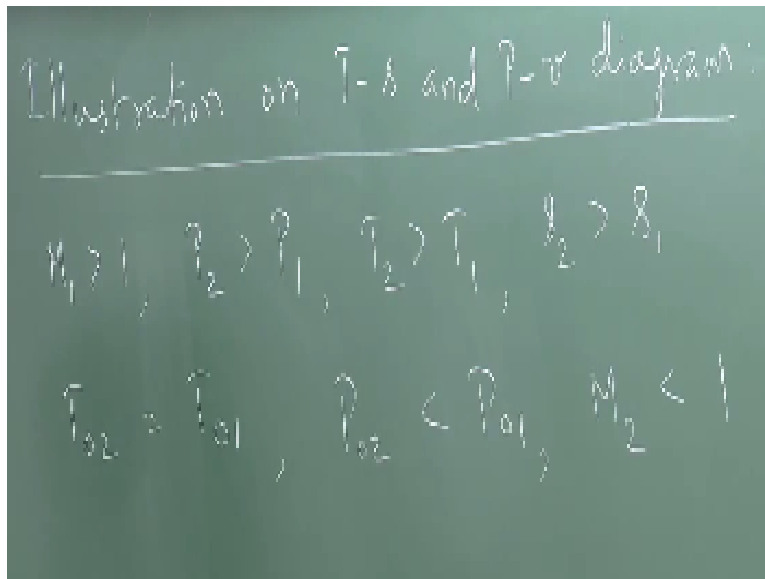 Illustration on T-s and P-v diagram:
M₁ > 1, P₂ > P₁, T₂ > T₁, s₂ > s₁
T₀₂ = T₀₁, P₀₂ < P₀₁, M₂ < 1